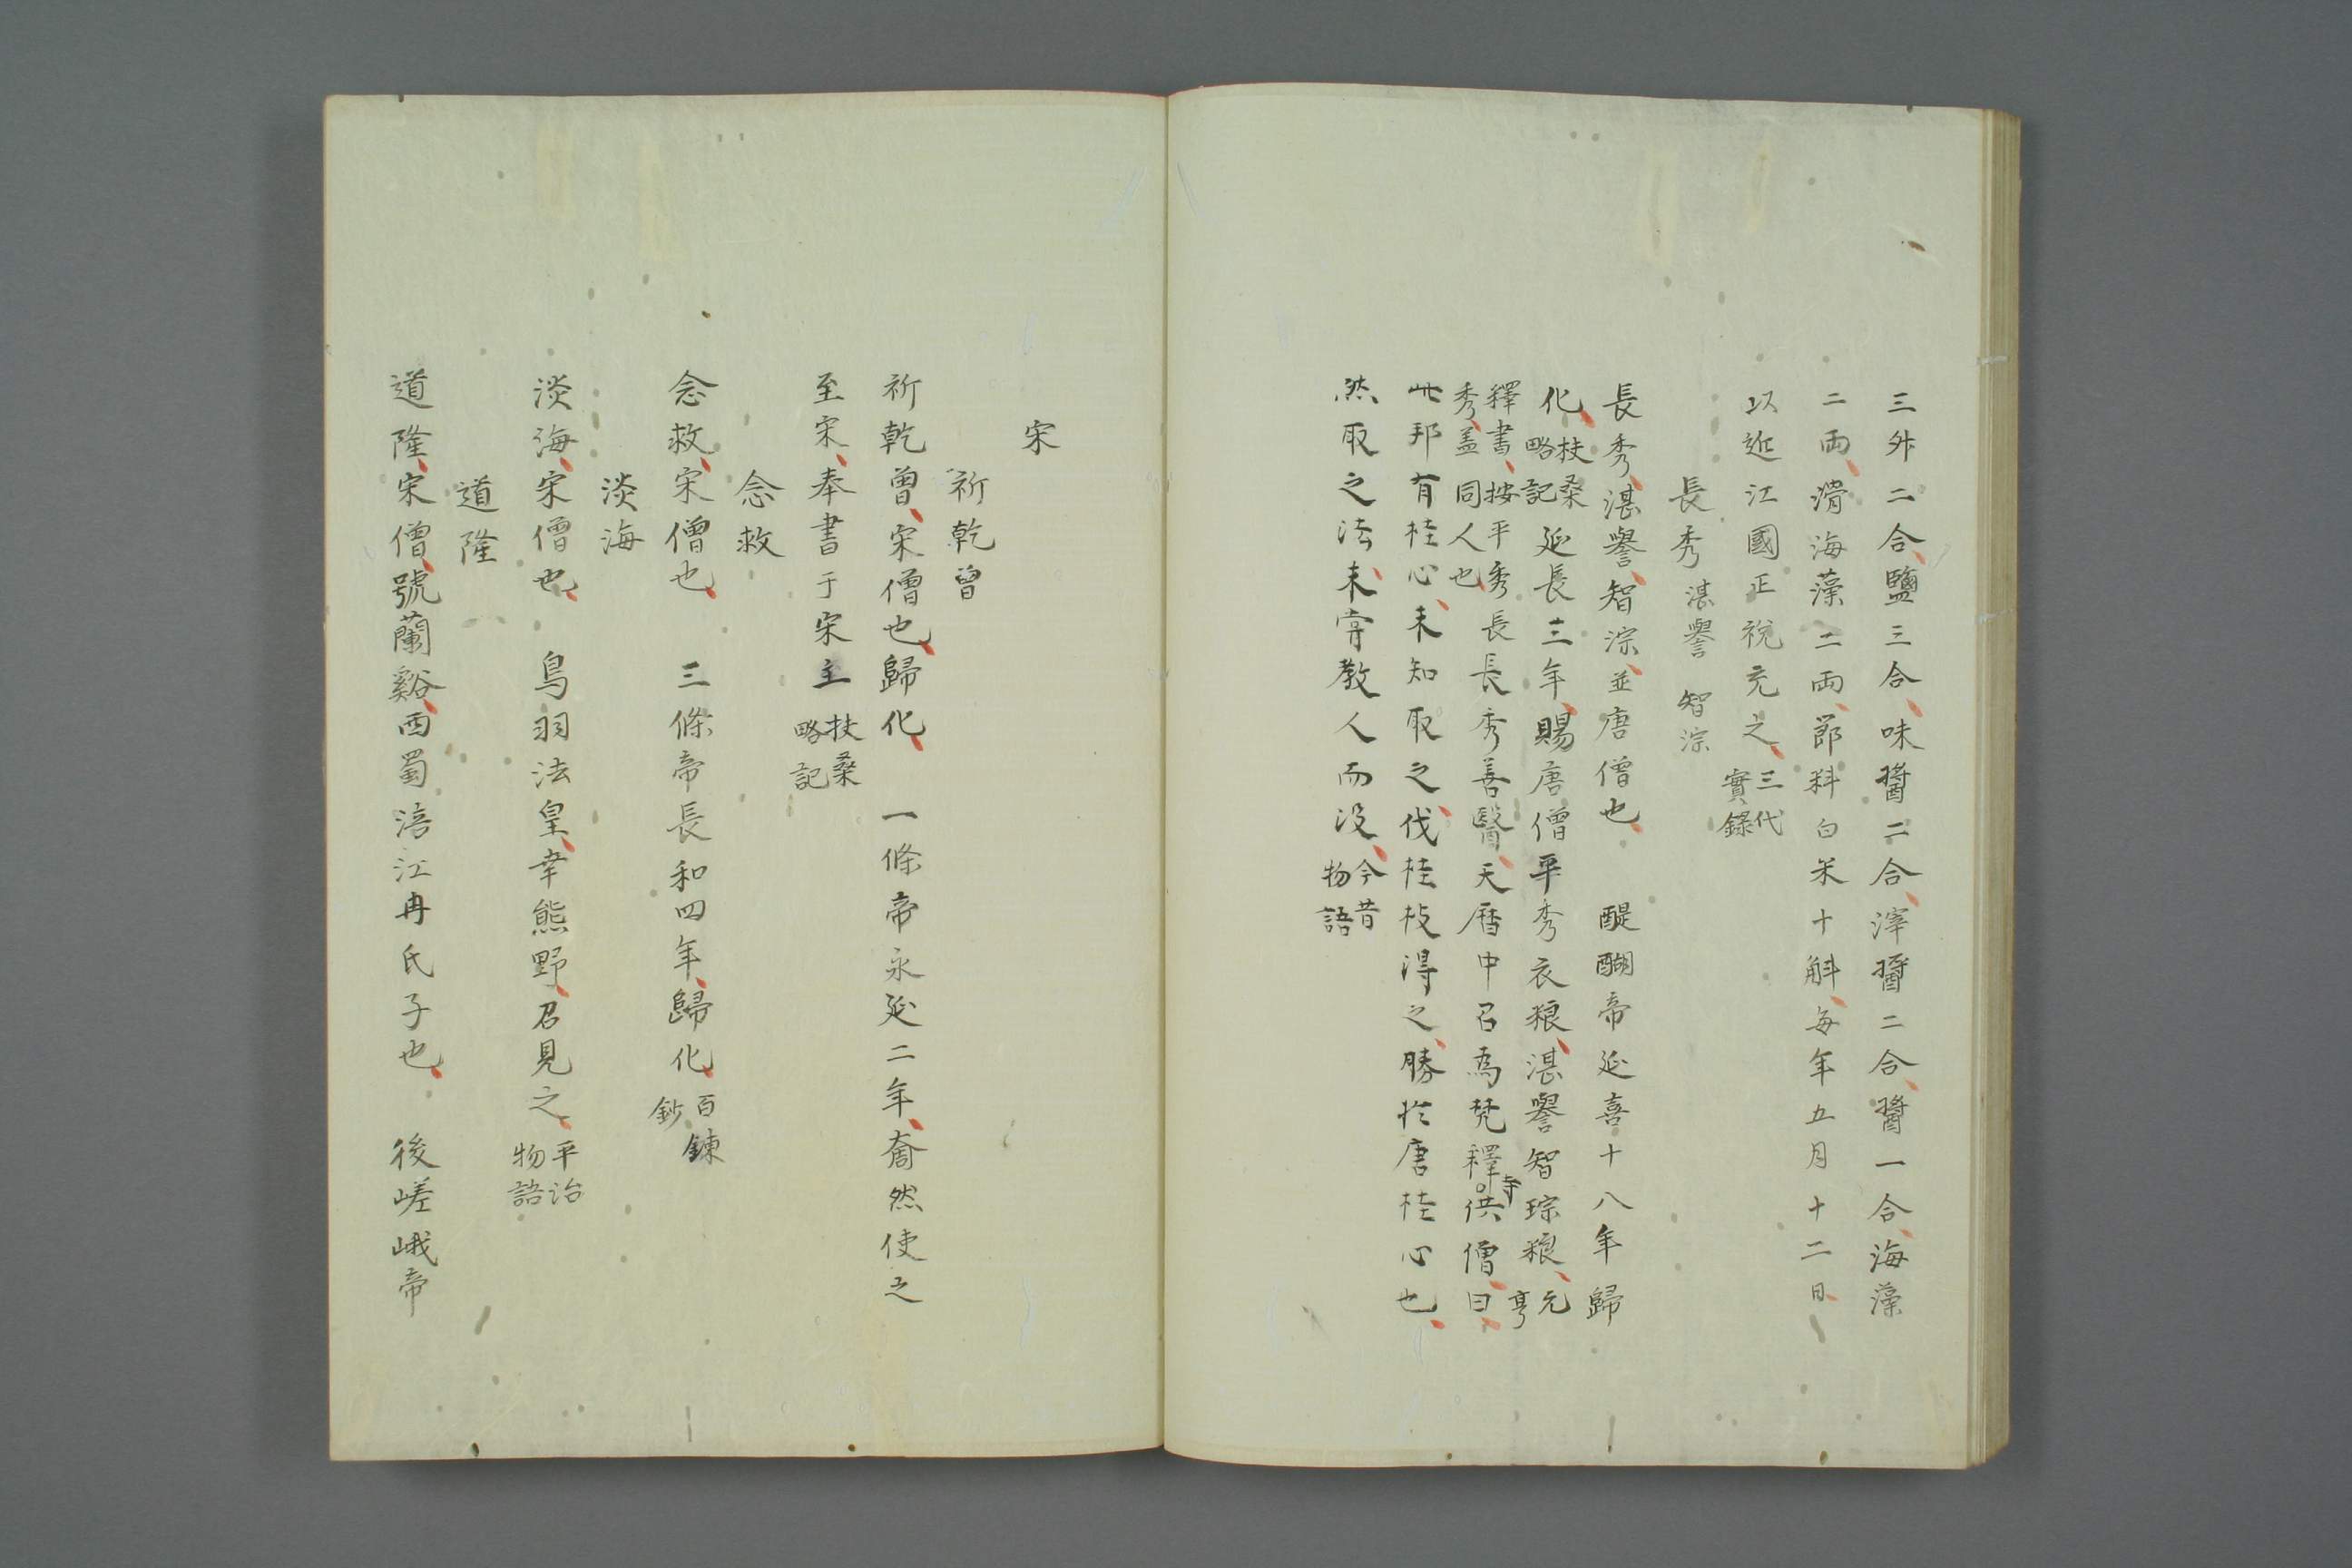 三升二合、鹽三合、味醬二合、滓醬二合、醬一合、海藻
二両、滑海藻二両、節料白米十斛、毎年五月十二日、
以近江國正税充之、三代實録
長秀 湛譽 智淙
長秀、湛譽、智淙、並唐僧也、醍醐帝延喜十八年歸
化、扶桑略記 延長三年、賜唐僧平秀衣粮、湛譽智琮粮、元亨
釋書、按平秀、盖同人也、長秀長秀善醫、天暦中召為梵釋寺供僧、曰、
此邦有桂心、未知取之、伐桂枝得之、勝於唐桂心也、
然取之法、未甞教人而没、今昔物語
宋
祈乾曾
祈乾曾、宋僧也、歸化、一條帝永延二年、奝然使之
至宋、奉書于宋主 扶桑略記
念救
念救、宋僧也、三條帝長和四年、歸化、百錬鈔
淡海
淡海、宋僧也、鳥羽法皇、幸熊野、召見之、平治物語
道隆
道隆、宋僧、號蘭谿、西蜀涪江冉氏子也、後嵯峨帝